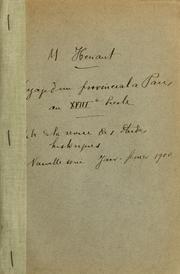 M Henaut
yage d'un provincial a Paris
au XVIIIe Siecle
de la revue des Etudes
historiques
Nouvelle serie Janv-fevrier 1900